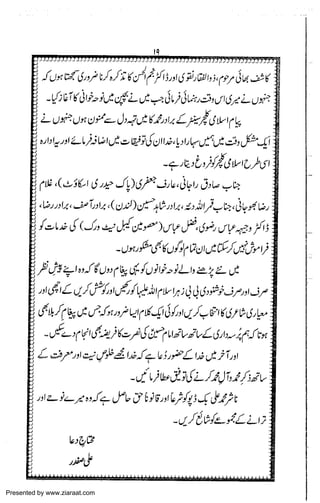 ۱۹
کاشف بھائی مرحوم، ذوالفقار نقوی اور ڈاکٹر نجم الحسن کا تذکرہ کرنا ضروری سمجھتا ہوں کہ
جنہوں نے میری اس وقت رہنمائی فرمائی جب میں نے بچپنے میں نوحہ خوانی کا آغاز کیا۔
پیامِ اسلامی کلچرل سینٹر کے برادر کا میں تہہ دل سے ممنون ہوں جنہوں نے
ایک مشکل وقت میں ہمیں سہارا دیا، خدا ان کی توفیقات میں اضافہ فرمائے اور یہ ادارہ
اسی طرح اسلامی کلچر کو فروغ دیتا رہے۔
جناب صادق راجانی، عارف جعفری (پاک حیدری اسکاؤٹ)، غلام
رضا، رضا بھوجانی، جناب قمر اللہ دتہ، برادر شاہد حسین (لندن)، برادر آصف، برادر رضا، اور
ڈاکٹر وجیہہ عباس رضوی، فضل عباس (معصومین نیٹ ورک) کی خدمات کو
فراموش نہیں کر سکتا میں ان تمام لوگوں کا بھی مشکور ہوں۔
میں نئے پڑھنے والے نوحہ خوانوں کو یہی پیغام دوں گا کہ وہ اپنے پیشِ نظر
صرف اور صرف خوشنودی بی بی زہرا سلام اللہ علیہا کو رکھیں اور کوشش کریں کے اچھی اور
معیاری شاعری کا انتخاب کریں اور کوئی ایک کلام ایسا ضرور ہو جس میں پیغامِ کربلا بھی
ہو تاکہ ہم پُرسہ داری کے ساتھ ساتھ امام حسینؑ کی نصرت کا فریضہ بھی انجام دے سکیں۔
اور آخر میں خدا کے حضور دعا ہے کہ خدا مجھے خلوصِ نیت اور معرفت کے
ساتھ ذکرِ محمدؐ و آلِ محمدؐ کرنے کی توفیق عطا فرمائیں۔
ناشرِ علومِ محمدؐ بک ڈپو کو شرعاً اور قانوناً حق حاصل ہے کہ وہ میرے نوحے اور
ترانے کے مجموعے کو شائع کریں۔
محتاجِ دعا
علی صفدر
Presented by www.ziaraat.com